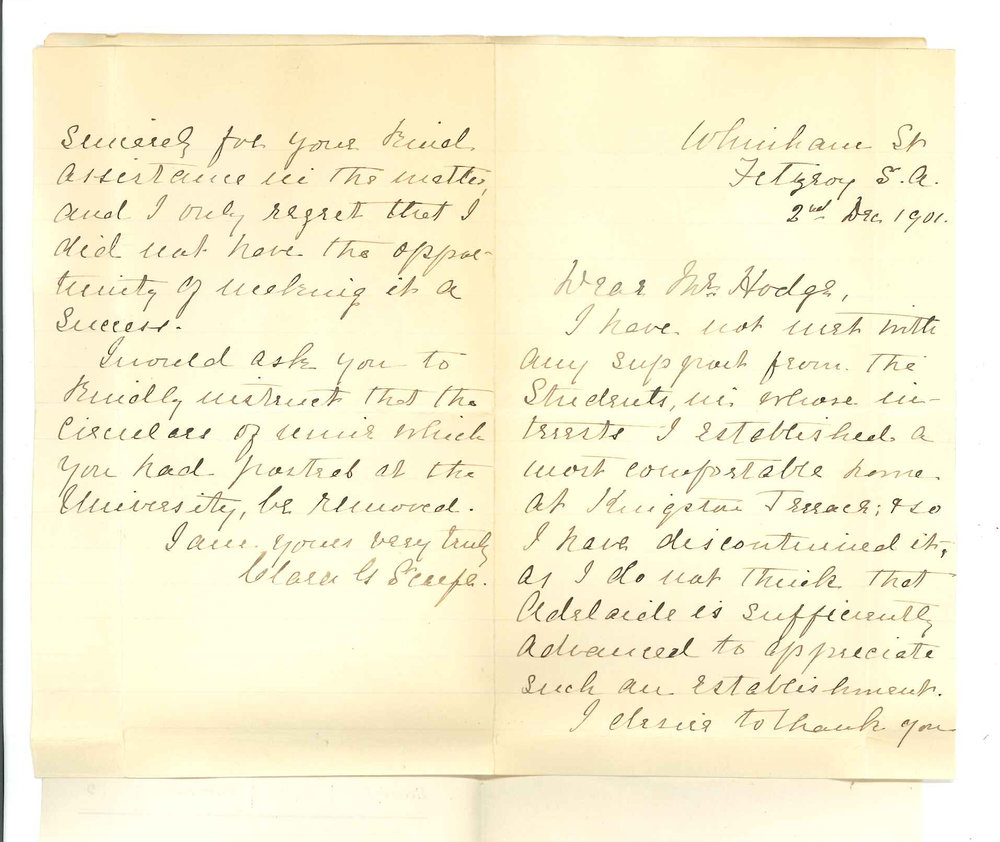 Whinham St
Fitzroy S.A.
2nd Dec 1901.
Dear Mr. Hodge,
I have not met with
any support from the
Students, in whose in-
terests I established a
most comfortable home
at Kingston Terrace; & so
I have discontinued it,
as I do not think that
Adelaide is sufficiently
advanced to appreciate
such an establishment.
I desire to thank you
sincerely for your kind
assistance in the matter,
and I only regret that I
did not have the oppor-
tunity of making it a
success.
I would ask you to
kindly instruct that the
circulars of mine which
you had posted at the
University, be removed.
I am yours very truly
Clara G Scarfe.